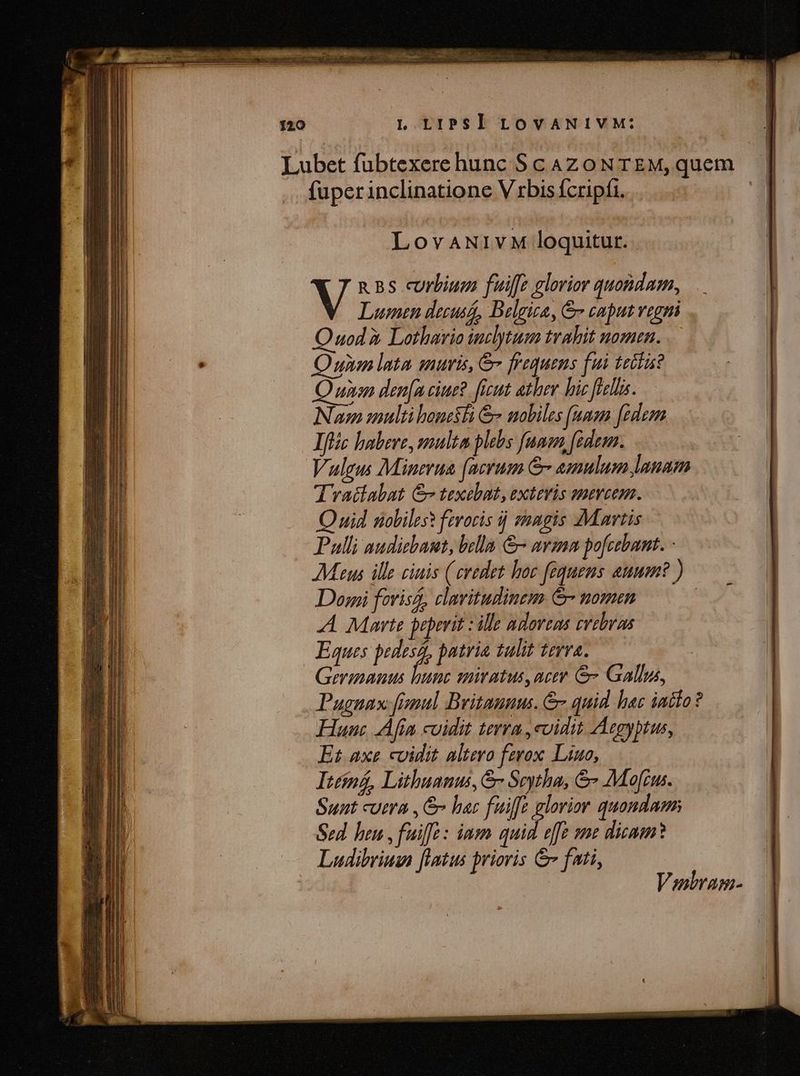 120 L. LIPSI LOVANIVM:
Lubet ſubtexere hunc SCAZONTEM, quem
ſuper inclinatione Vrbis ſcripſi.
LOVANIVM loquitur.
VRBS vrbium fuiſſe glorior quondam,
Lumen decusq́, Belgica, & caput regni
Quod à Lothario inclytum trahit nomen.
Quàm lata muris, & frequens fui tectis?
Quàm denſa ciue? ſicut æther hic ſtellis.
Nam multi honesti & nobiles ſuam ſedem
Iſtic habere, multa plebs ſuam ſedem.
Vulgus Mineruæ ſacrum & æmulum lanam
Tractabat & texebat, exteris mercem.
Quid nobiles? ferocis ij magis Martis
Pulli audiebant, bella & arma poſcebant.
Meus ille ciuis (credet hoc ſequens æuum?)
Domi forisq́, claritudinem & nomen
A Marte peperit: ille adoreas crebras
Eques pedesq́, patriæ tulit terræ.
Germanus hunc miratus, acer & Gallus,
Pugnax ſimul Britannus. & quid hæc iacto?
Hunc Aſia vidit terra, vidit Aegyptus,
Et axe vidit altero ferox Liuo,
Itémq́, Lithuanus, & Scytha, & Moſcus.
Sunt vera, & hæc fuiſſe glorior quondam;
Sed heu, fuiſſe: iam quid eſſe me dicam?
Ludibrium ſtatus prioris & fati,
Vmbram-